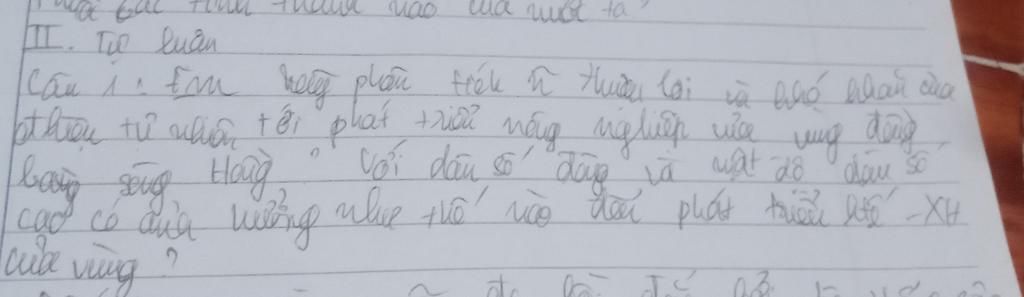 tỉnh thành nào của nước ta
II. Tự luận
Câu 1: Em hãy phân tích ~ thuận lợi và khó khăn của
đkiện tự nhiên tới phát triển nông nghiệp của vùng đồng
bằng sông Hồng? Với dân số đông và mật độ dân số
cao có ảnh hưởng như thế nào đến phát triển ktế - XH
của vùng?